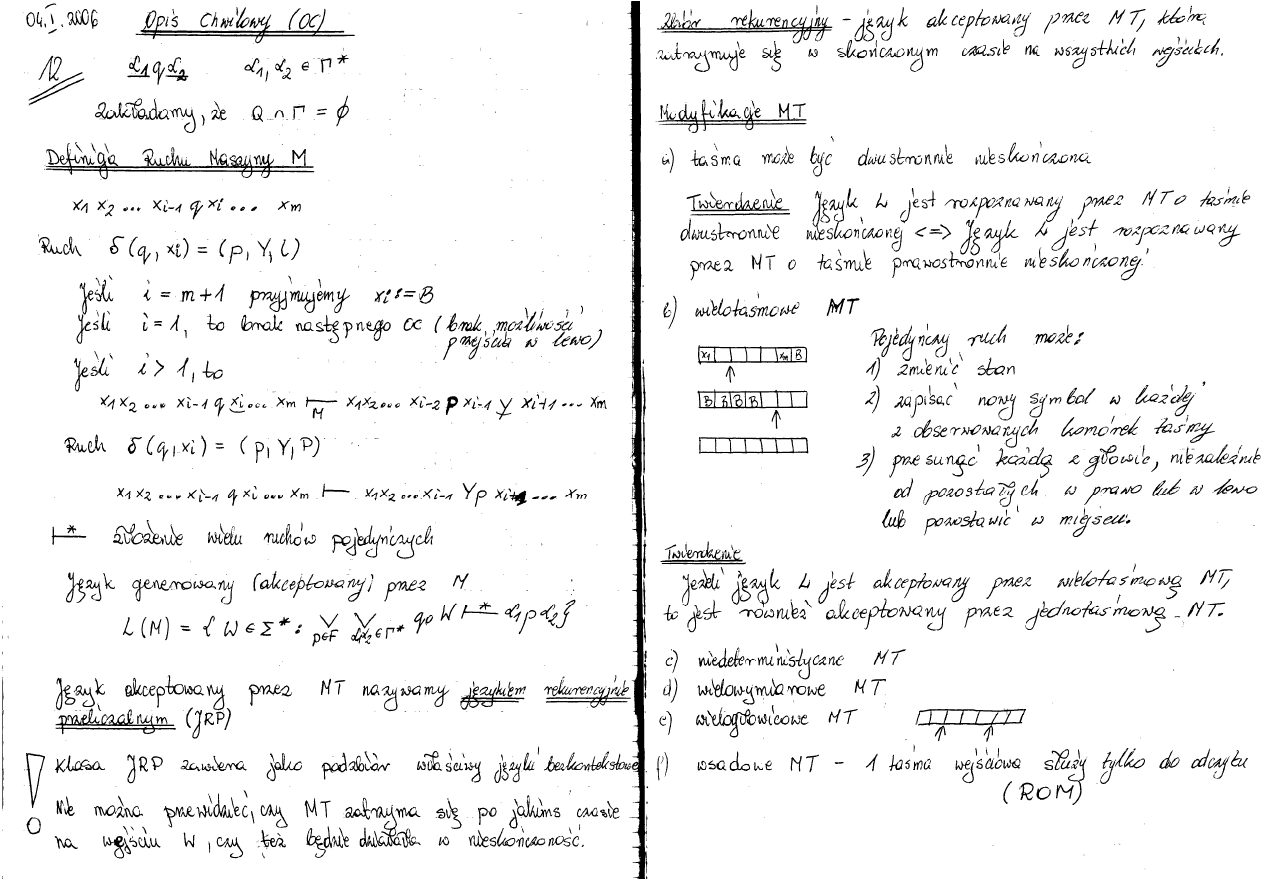 04.I.2006 Opis Chwilowy (OC)
12 α1qα2 α1,α2 ∈ Γ*
Zakładamy, że Q ∩ Γ = ϕ
Definicja Ruchu Maszyny M
x1 x2 ... xi-1 q xi ... xm
Ruch δ(q,xi) = (p,Y,L)
Jeśli i = m+1 przyjmujemy xi := B
Jeśli i=1, to brak następnego OC (brak możliwości
przejścia w lewo)
Jeśli i > 1, to
x1x2 ... xi-1 q xi... xm ⊢M x1x2... xi-2 p xi-1 Y xi+1 ... xm
Ruch δ(q,xi) = (p,Y,P)
x1x2 ... xi-1 q xi ... xm ⊢ x1x2...xi-1 Yp xi+1 ... xm
⊢* złożenie wielu ruchów pojedyńczych
Język generowany (akceptowany) przez M
L(M) = { W ∈ Σ* : ∨p∈F ∨α1α2∈Γ* q0 W ⊢* α1pα2}
Język akceptowany przez MT nazywamy językiem rekurencyjnie
przeliczalnym (JRP)
! Klasa JRP zawiera jako podzbiór właściwy języki bezkontekstowe
Nie można przewidzieć, czy MT zatrzyma się po jakimś czasie
na wejściu W, czy też będzie działała w nieskończoność.
Zbiór rekurencyjny - język akceptowany przez MT, która
zatrzymuje się w skończonym czasie na wszystkich wejściach.
Modyfikacje MT
a) taśma może być dwustronnie nieskończona
Twierdzenie Język L jest rozpoznawany przez MT o taśmie
dwustronnie nieskończonej <=> Język L jest rozpoznawany
przez MT o taśmie prawostronnie nieskończonej.
b) wielotaśmowe MT
Pojedyńczy ruch może:
x1 xm B
1) zmienić stan
B B B B
2) zapisać nowy symbol w każdej
z obserwowanych komórek taśmy
3) przesunąć każdą z głowic, niezależnie
od pozostałych w prawo lub w lewo
lub pozostawić w miejscu.
Twierdzenie
Jeżeli język L jest akceptowany przez wielotaśmową MT,
to jest również akceptowany przez jednotaśmową MT.
c) niedeterministyczne MT
d) wielowymiarowe MT
e) wielogłowicowe MT
f) wsadowe MT - 1 taśma wejściowa służy tylko do odczytu
(ROM)